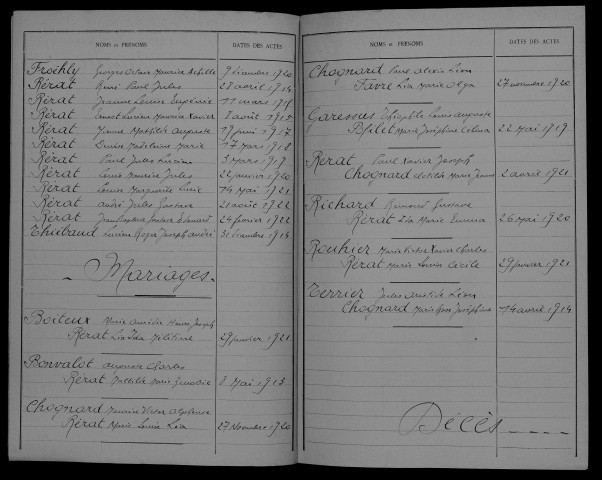 NOMS ET PRÉNOMS DATES DES ACTES
Froehly Georges Octave Maurice Achille 9 décembre 1920
Rérat René Paul Jules 28 avril 1914
Rérat Jeanne Louise Eugénie 11 mars 1915
Rérat Ernest Lucien Maurice Xavier 8 août 1915
Rérat Mathilde Auguste 17 juin 1917
Rérat Denise Madeleine Marie 17 mars 1918
Rérat Paul Jules Lucien 3 mars 1919
Rérat Louis Maurice Jules 22 janvier 1920
Rérat Louise Marguerite Lucie 14 Mai 1921
Rérat André Jules Gustave 21 août 1922
Rérat Jean Gustave Edouard 24 février 1922
Thiébaud Lucien Roger Joseph André 31 décembre 1914
- Mariages -
Boiteux Marie Amédée Henri Joseph
Rérat Léa Ida 29 janvier 1921
Bonvalot Auguste Charles
Rérat Mathilde Marie 8 Mai 1915
Chognard Maurice Victor Alphonse
Rérat Marie Louise Léa 27 Novembre 1920
NOMS ET PRÉNOMS DATES DES ACTES
Chognard Paul Alexis Léon
Favre Léa Marie Olga 27 novembre 1920
Garessus Théophile Louis Auguste
Marie Joséphine 22 Mai 1919
Rérat Paul Xavier Joseph
Chognard Clotilde Marie Jeanne 2 avril 1921
Richard Raymond Gustave
Rérat Ida Marie Emma 26 Mai 1920
Rouhier Marie Victor Xavier Charles
Rérat Marie Louise Cécile 29 janvier 1921
Terrier Jules Aristide Léon
Chognard Marie Rose Joséphine 14 avril 1914
Décès